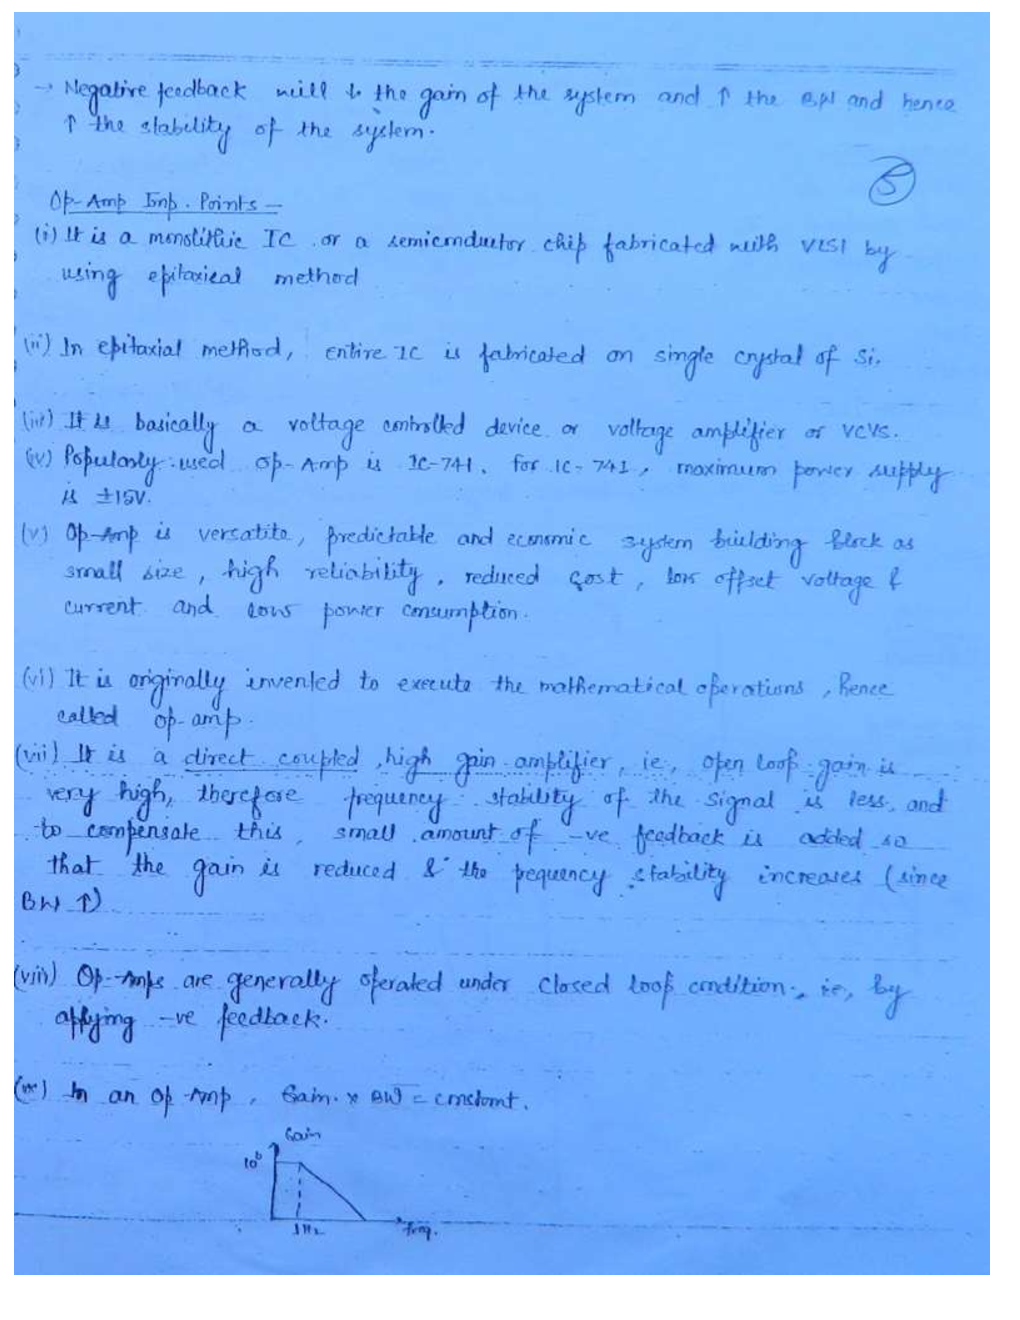 → Negative feedback will ↓ the gain of the system and ↑ the BW and hence
↑ the stability of the system.
5
Op-Amp Imp. Points —
(i) It is a monolithic IC or a semiconductor chip fabricated with VLSI by
using epitaxical method
(ii) In epitaxial method, entire IC is fabricated on single crystal of Si.
(iii) It is basically a voltage controlled device or voltage amplifier or VCVS.
(iv) Popularly used op-Amp is IC-741. for IC-741, maximum power supply
is ±15V.
(v) Op-Amp is versatite, predictable and economic system building block as
small size, high reliability, reduced cost, low offset voltage &
current and low power consumption.
(vi) It is originally invented to execute the mathematical operations, hence
called op-amp.
(vii) It is a direct coupled, high gain amplifier, ie, open loop gain is
very high, therefore frequency stability of the signal is less, and
to compensate this, small amount of -ve feedback is added so
that the gain is reduced & the fequency stability increases (since
BW ↑)
(viii) Op-Amps are generally operated under closed loop condition, ie, by
applying -ve feedback.
(ix) In an Op Amp, Gain × BW = constant.
Gain
10⁶
1Hz
freq.